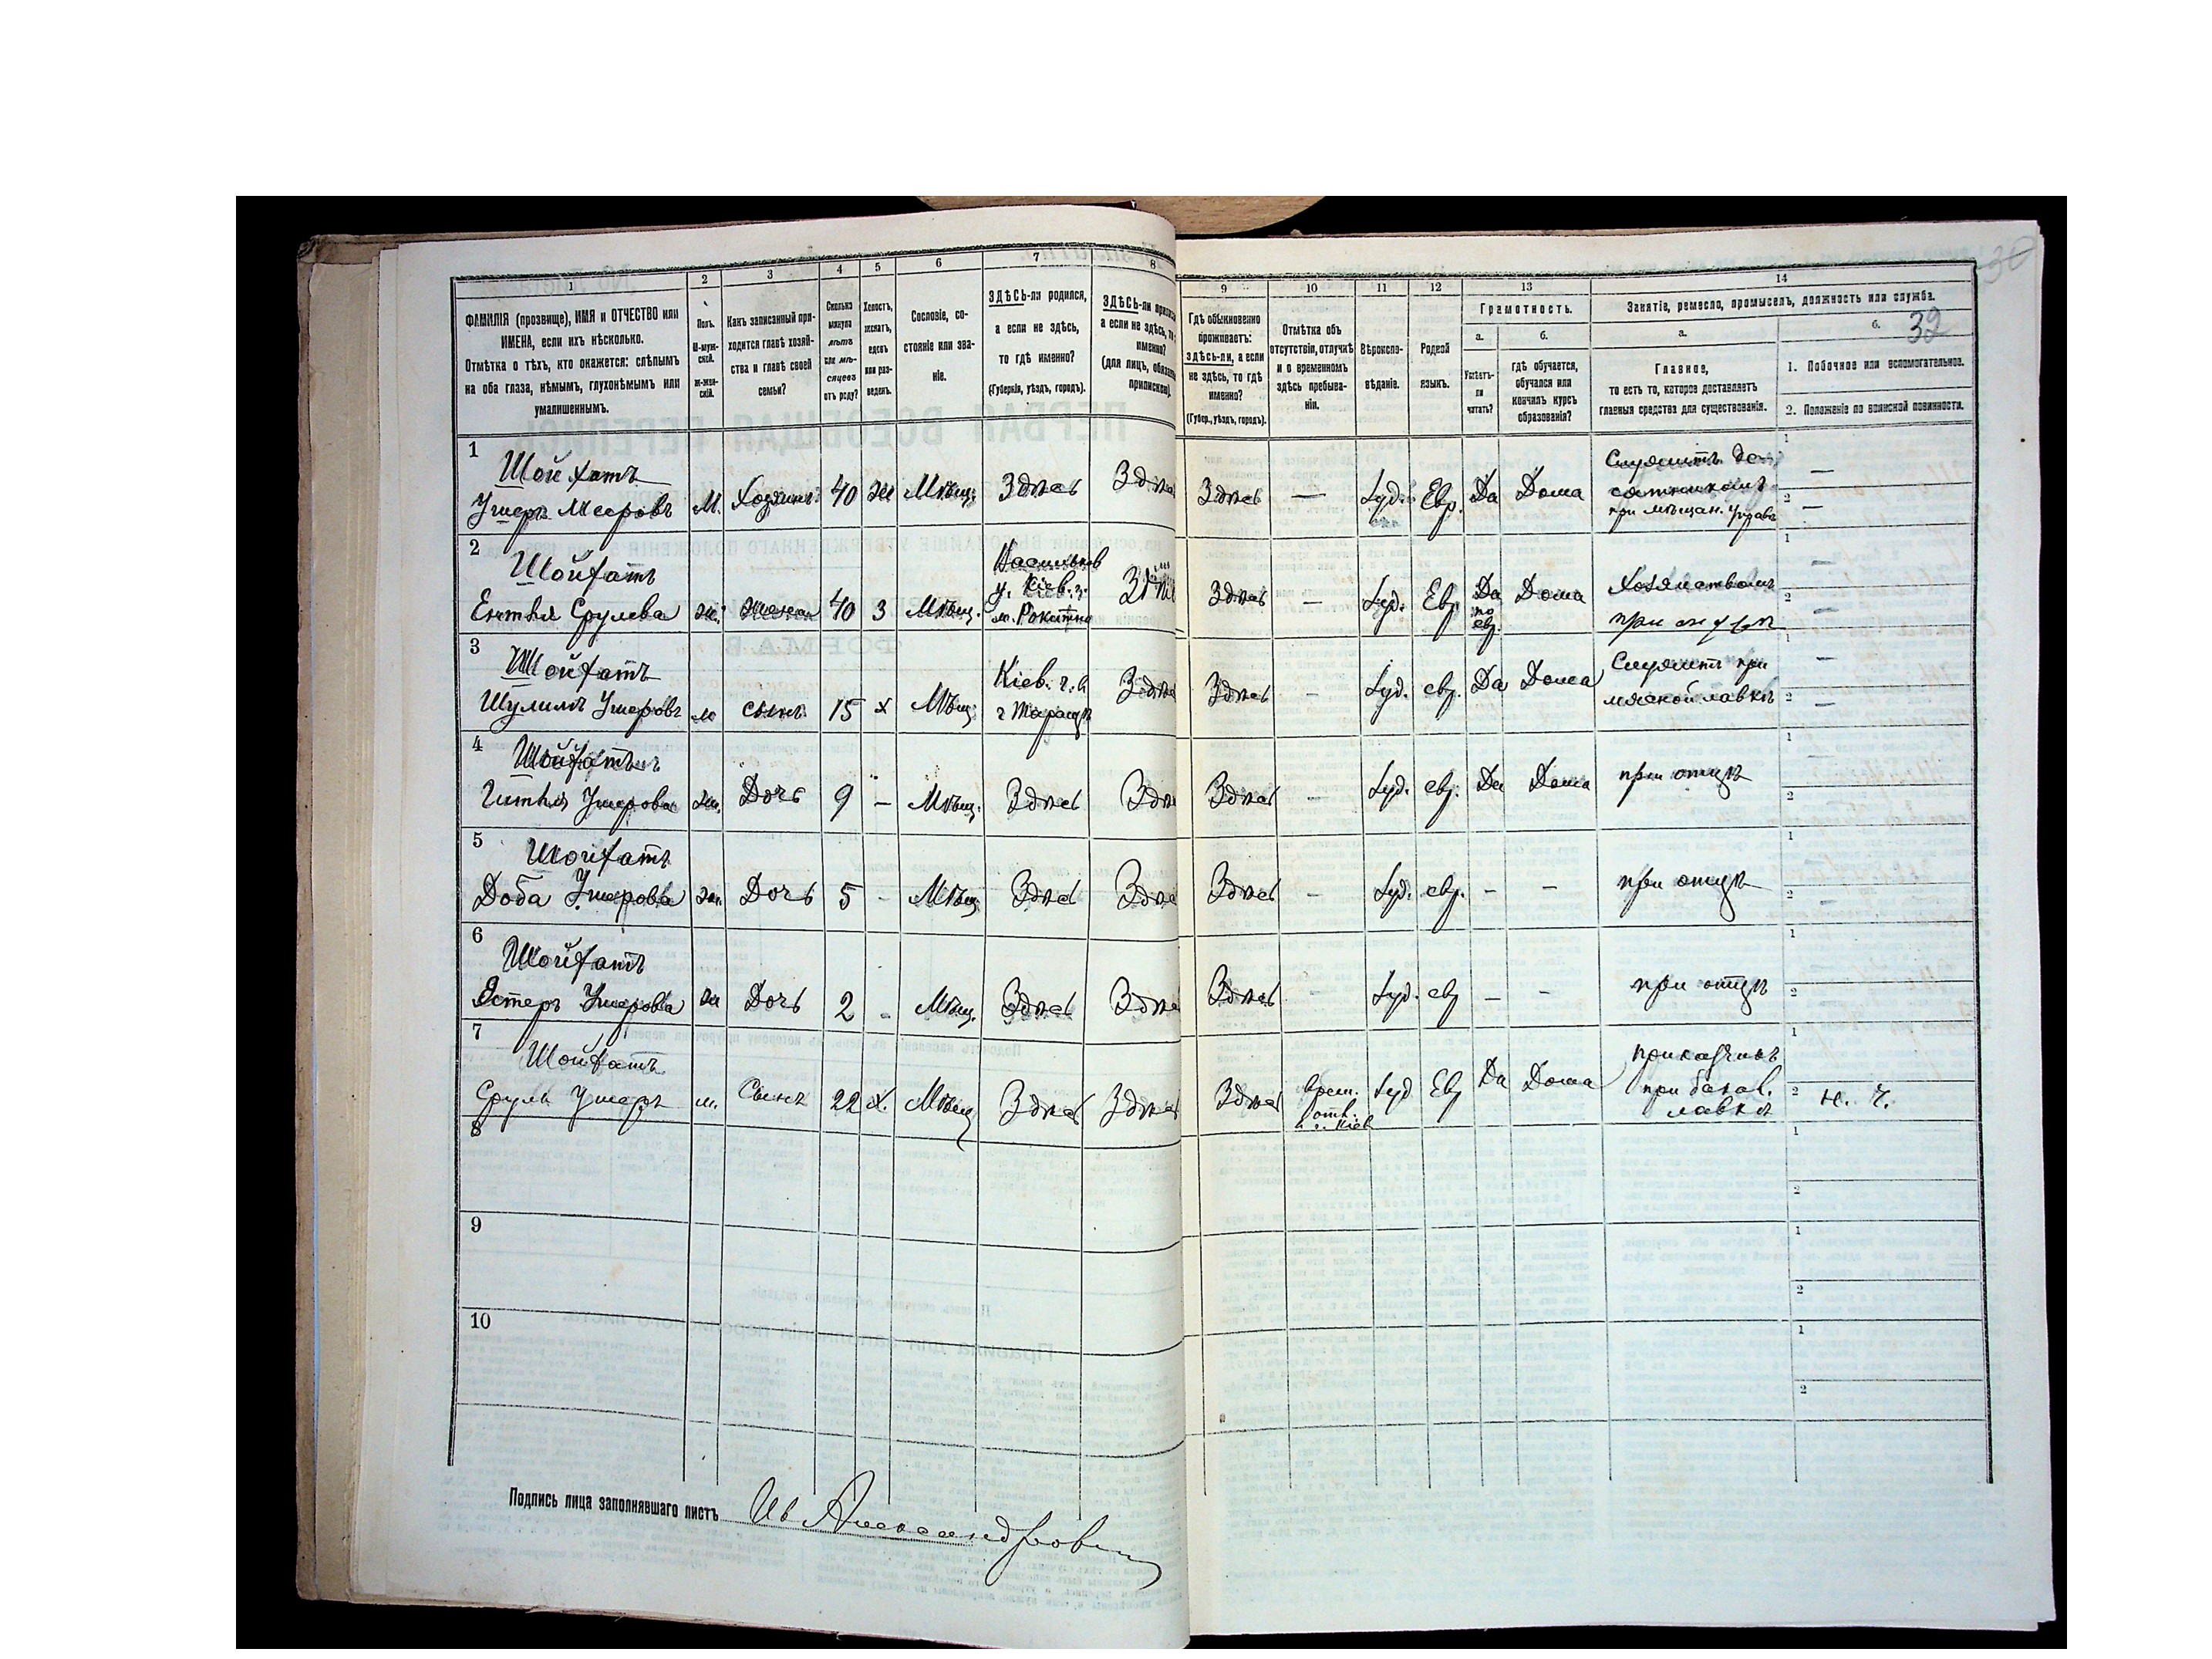 30
32
1
2
3
4
5
6
7
8
9
10
11
12
13
14
ФАМИЛІЯ (прозвище), ИМЯ и ОТЧЕСТВО или
ИМЕНА, если ихъ нѣсколько.
Отмѣтка о тѣхъ, кто окажется: слѣпымъ
на оба глаза, нѣмымъ, глухонѣмымъ или
умалишеннымъ.
Полъ.
М-муж-
ской.
Ж-жен-
скій.
Какъ записанный при-
ходится главѣ хозяй-
ства и главѣ своей
семьи?
Сколько
минуло
лѣтъ
или мѣ-
сяцевъ
отъ роду?
Холостъ,
женатъ,
вдовъ
или раз-
веденъ.
Сословіе, со-
стояніе или зва-
ніе.
ЗДѢСЬ-ли родился,
а если не здѣсь,
то гдѣ именно?
(Губернія, уѣздъ, городъ).
ЗДѢСЬ-ли
а если не здѣсь,
именно?
(для лицъ,
припискою).
Гдѣ обыкновенно
проживаетъ:
здѣсь-ли, а если
не здѣсь, то гдѣ
именно?
(Губер., уѣздъ, городъ).
Отмѣтка объ
отсутствіи, отлучкѣ
и о временномъ
здѣсь пребыва-
ніи.
Вѣроиспо-
вѣданіе.
Родной
языкъ.
Грамотность.
а.
б.
Умѣетъ-
ли
читать?
гдѣ обучается,
обучался или
кончилъ курсъ
образованія?
Занятіе, ремесло, промыселъ, должность или служба.
а.
б.
Главное,
то есть то, которое доставляетъ
главныя средства для существованія.
1. Побочное или вспомогательное.
2. Положеніе по воинской повинности.
1
Шойхатъ
Ушеръ Мееровъ М. Хозяинъ 40 Же Мѣщ. Здѣсь Здѣсь Здѣсь — Іуд. Евр. Да Дома
Служитъ
при мѣщан. Управѣ
1 —
2 —
2
Шойхатъ
Ентля Срулева Ж. Жена 40 З Мѣщ.
Васильков
у. Кіев. г.
м. Рокитно
Здѣсь Здѣсь — Іуд. Евр.
Да
по
евр.
Дома
Хозяйствомъ
при мужѣ
1 —
2 —
3
Шойхатъ
Шулимъ Ушеровъ м сынъ 15 х Мѣщ.
Кіев. г.
г Таращѣ
Здѣсь Здѣсь - Іуд. евр. Да Дома
Служитъ при
мясной лавкѣ
1 —
2 —
4
Шойхатъ
Гитля Ушерова ж. Дочь 9 — Мѣщ. Здѣсь Здѣсь Здѣсь - Іуд. евр. Да Дома при отцѣ
1
2
5
Шойхатъ
Доба Ушерова ж. Дочь 5 - Мѣщ. Здѣсь Здѣсь Здѣсь - Іуд. евр. - - при отцѣ
1
2
6
Шойхатъ
Эстеръ Ушерова ж Дочь 2 - Мѣщ. Здѣсь Здѣсь Здѣсь - Іуд. евр - - при отцѣ
1
2
7
Шойхатъ
Сруль Ушеръ м. Сынъ 22 х. Мѣщ Здѣсь Здѣсь Здѣсь
врем.
отл.
г. Кіев
Іуд Евр Да Дома
приказчикъ
при бакал.
лавкѣ
1
2 н. ч.
8
1
2
9
1
2
10
1
2
Подпись лица заполнявшаго листъ Ив Александрович